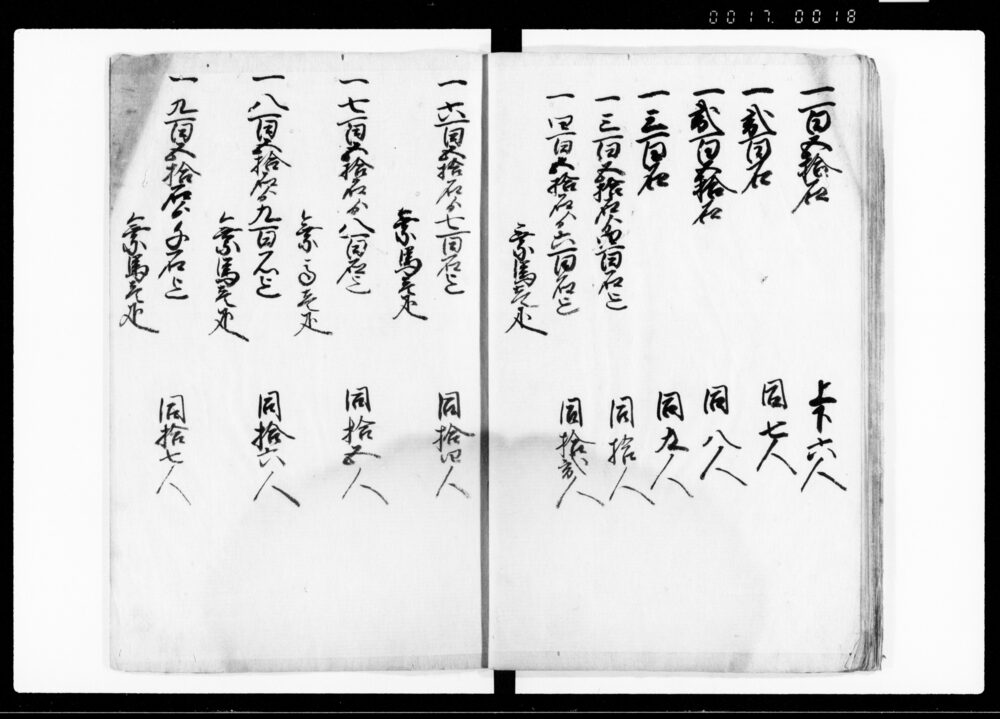 0017. 0018
一百五拾石
上下六人
一弐百石
同七人
一弐百五拾石
同八人
一三百石
同九人
一三百五拾石ゟ四百石迄
同拾人
一四百五拾石ゟ六百石迄
乗馬壱疋
同拾弐人
一六百五拾石ゟ七百石迄
乗馬壱疋
同拾四人
一七百五拾石ゟ八百石迄
乗馬壱疋
同拾五人
一八百五拾石ゟ九百石迄
乗馬壱疋
同拾六人
一九百五拾石ゟ千石迄
乗馬壱疋
同拾七人